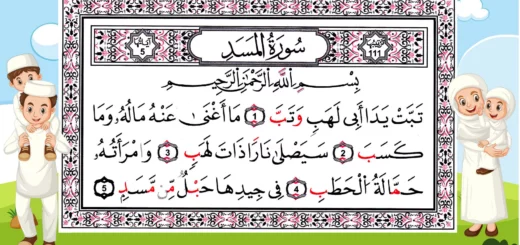 سُورَةُ المَسَد
بِسْمِ اللَّهِ الرَّحْمَٰنِ الرَّحِيمِ
تَبَّتْ يَدَا أَبِي لَهَبٍ وَتَبَّ ١ مَا أَغْنَىٰ عَنْهُ مَالُهُ وَمَا
كَسَبَ ٢ سَيَصْلَىٰ نَارًا ذَاتَ لَهَبٍ ٣ وَامْرَأَتُهُ
حَمَّالَةَ الْحَطَبِ ٤ فِي جِيدِهَا حَبْلٌ مِّن مَّسَدٍ ٥